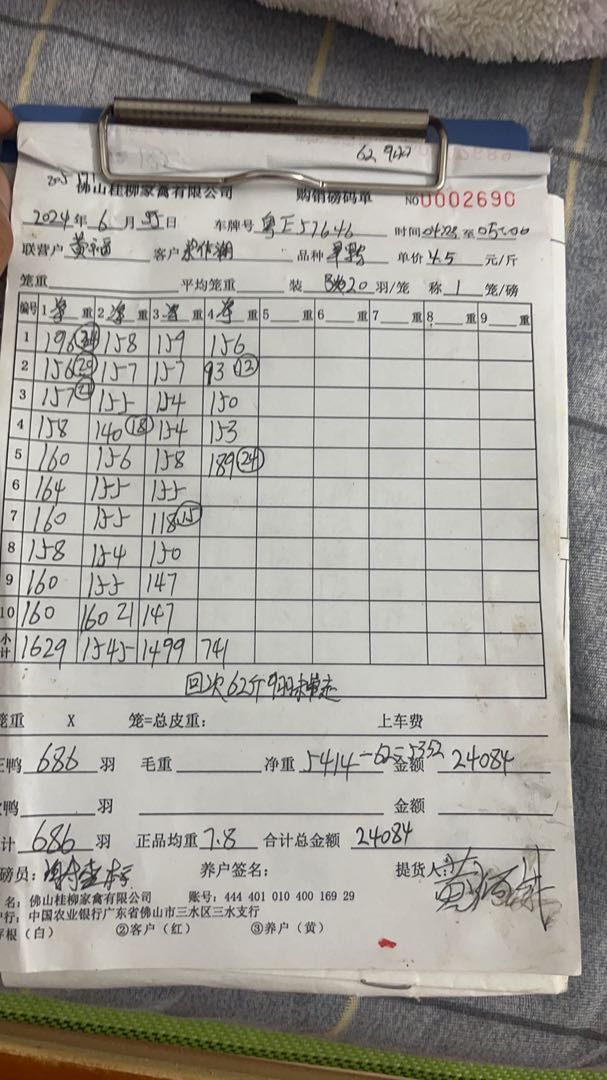 62
佛山桂柳家禽有限公司 购销磅码单 NO0002690
2024年 6月 日 车牌号 粤E57646 时间 至 05:00
联营户 客户 品种 单价 4.5 元/斤
笼重 平均笼重 装 20 羽/笼 称 1 笼/磅
编号 1 重 2 重 3 重 4 重 5 重 6 重 7 重 8 重 9 重
1 196 24 158 159 156
2 156 20 157 157 93 12
3 157 21 155 154 150
4 158 140 18 154 153
5 160 156 158 189 24
6 164 155 155
7 160 155 118 15
8 158 154 150
9 160 155 147
10 160 160 21 147
小计 1629 1545 1499 741
回次62斤9羽
笼重 X 笼=总皮重: 上车费
正鸭 686 羽 毛重 净重 5414-62=5352 金额 24084
鸭 羽 金额
计 686 羽 正品均重 7.8 合计总金额 24084
磅员: 养户签名: 提货人:
名: 佛山桂柳家禽有限公司 账号: 444 401 010 400 169 29
户行: 中国农业银行广东省佛山市三水区三水支行
存根(白) ②客户(红) ③养户(黄)